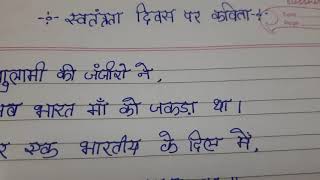 स्वतंत्रता दिवस पर कविता
गुलामी की जंजीरो ने,
भारत माँ को जकड़ा था।
एक भारतीय के दिल में,